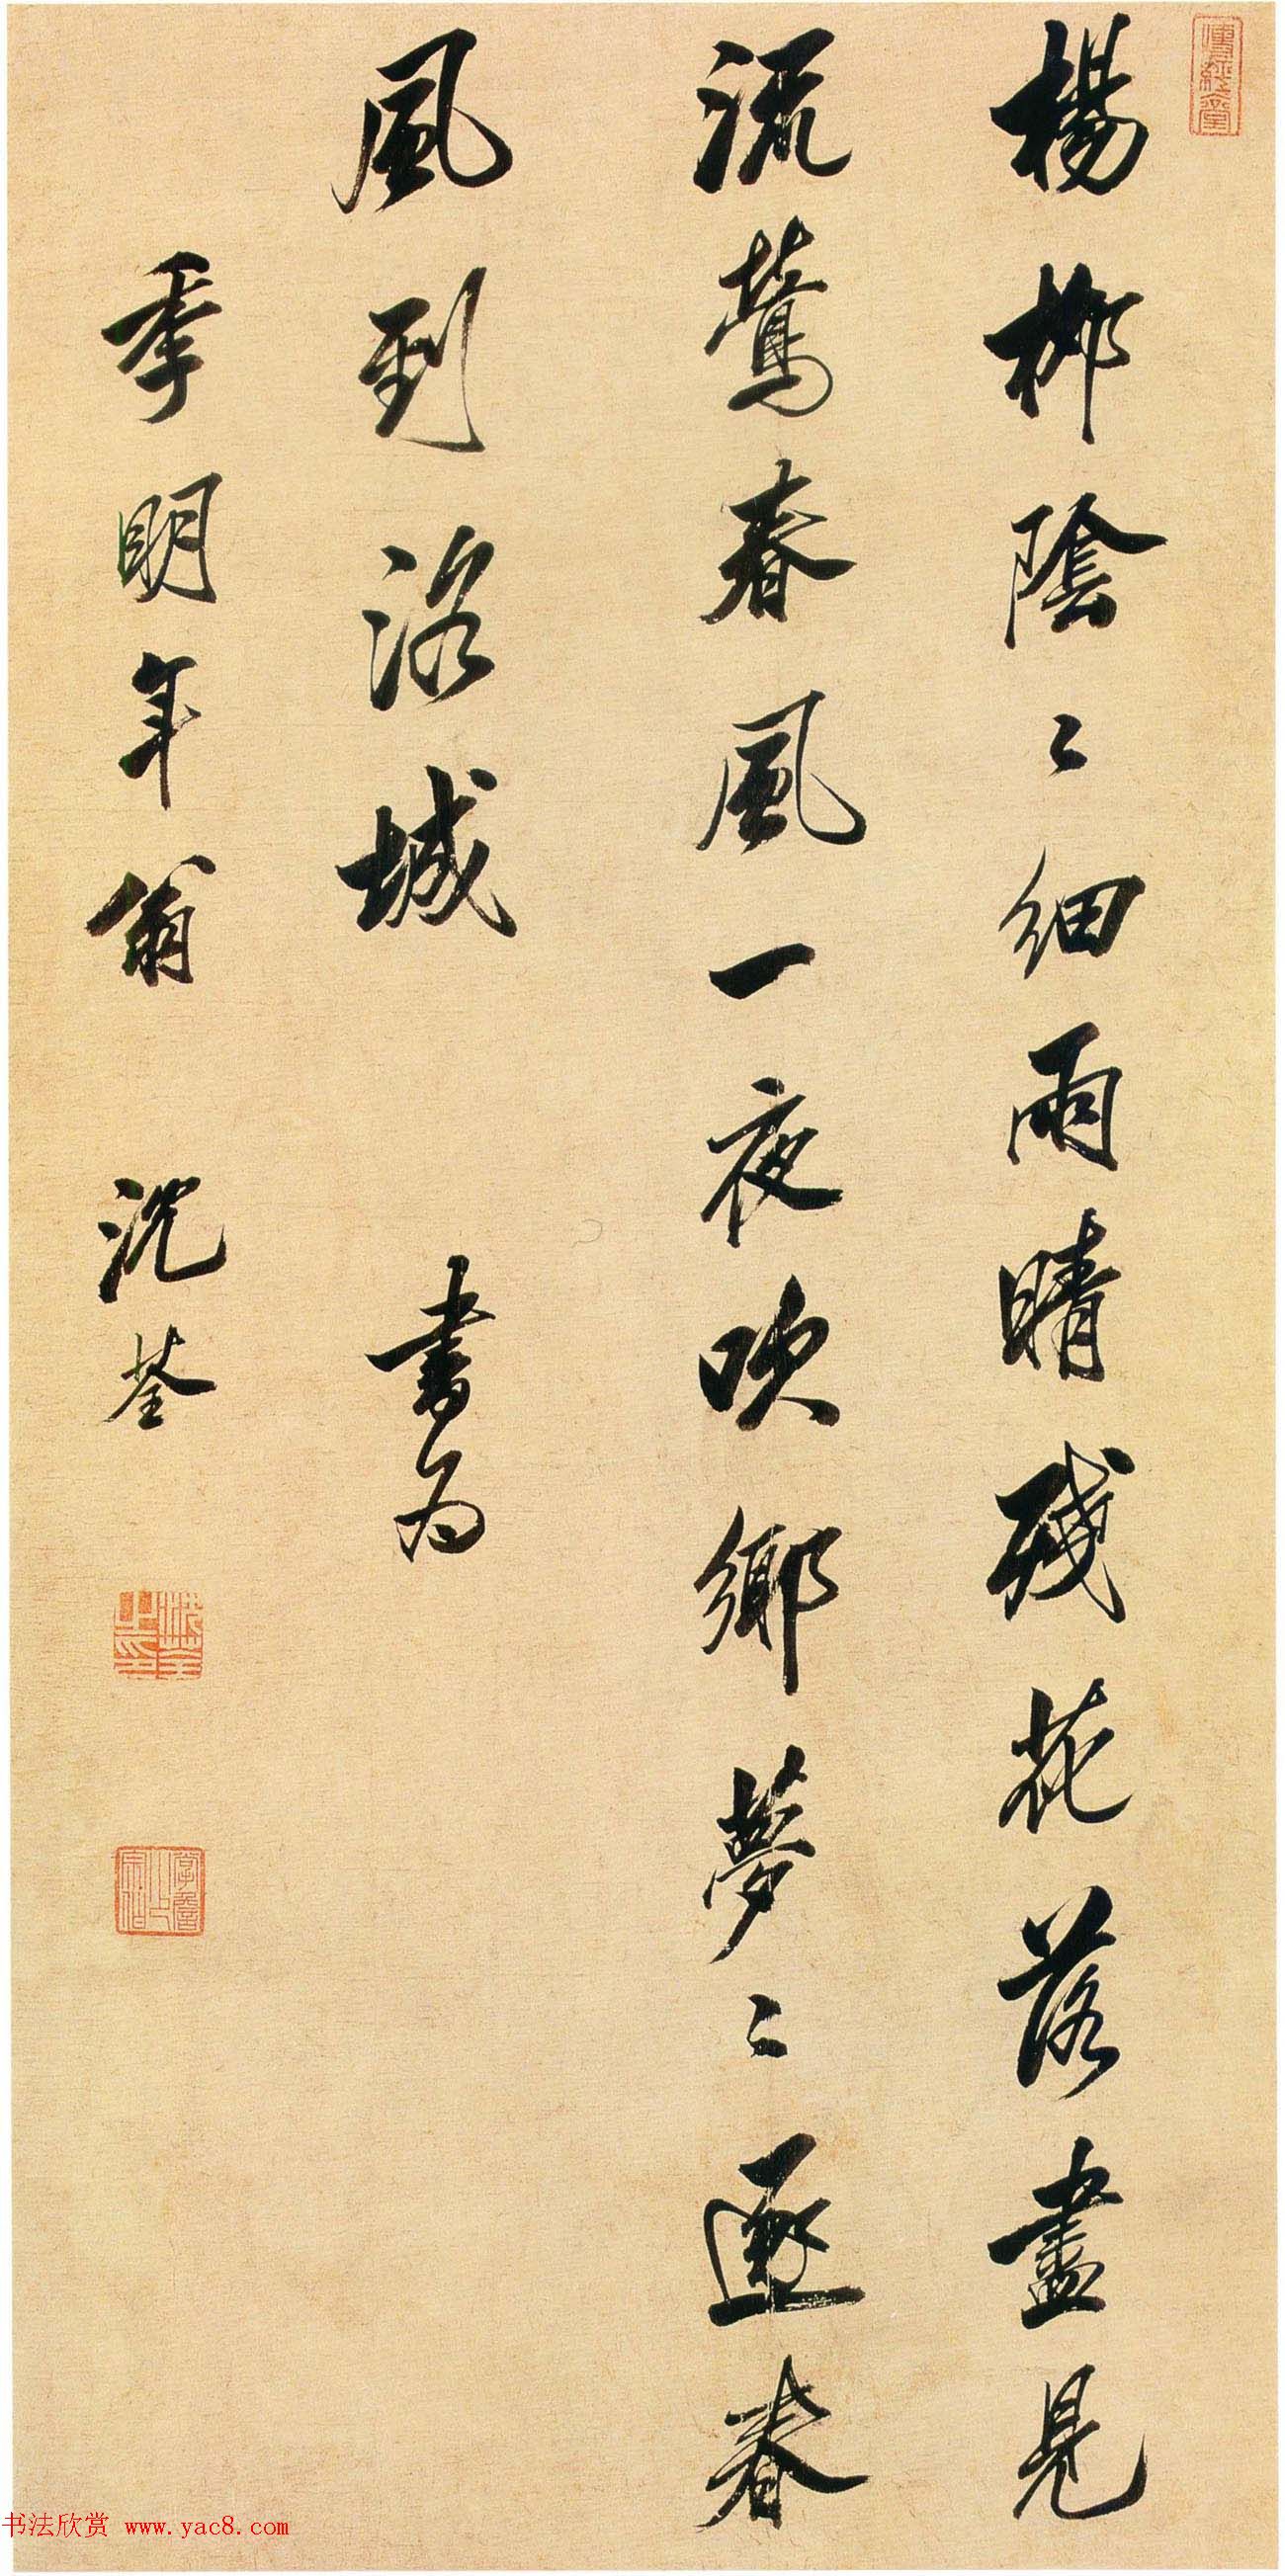 楊柳陰〻細雨晴殘花落盡見
流鶯春風一夜吹鄉夢〻逐春
風到洛城
書為
季明年翁 沈荃
傳經堂
沈荃之印
書法欣赏 www.yac8.com